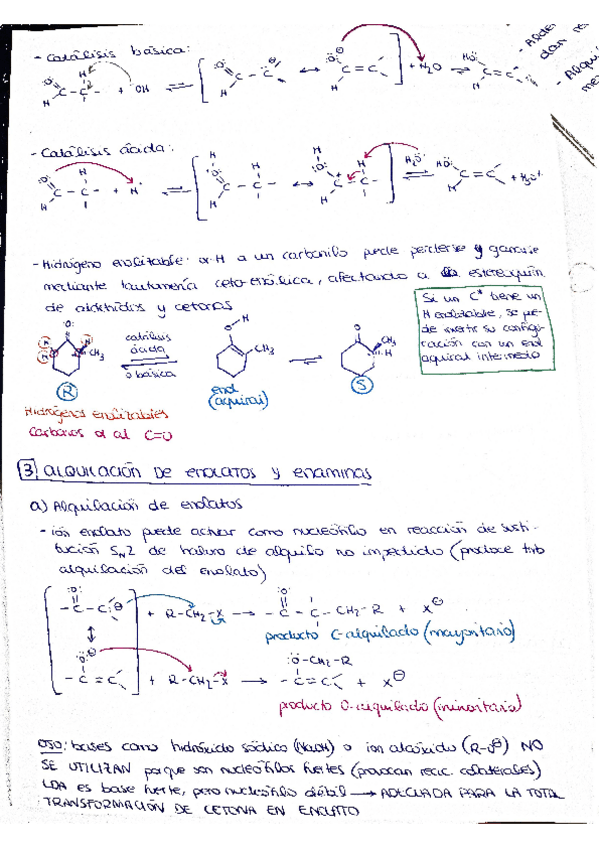 - Catálisis básica:
- Catálisis ácida:
- Hidrógeno enolizable: α-H a un carbonilo puede perderse y ganarse
mediante tautomería ceto-enólica, afectando a la estereoquím.
de aldehídos y cetonas
Si un C* tiene un
H enolizable, se pue-
de invertir su configu-
ración con un enol
aquiral intermedio
catálisis
ácida
o básica
R
enol
(aquiral)
S
Hidrógenos enolizables
Carbonos α al C=O
3. ALQUILACIÓN DE ENOLATOS Y ENAMINAS
a) Alquilación de enolatos
- ión enolato puede actuar como nucleófilo en reacción de susti-
tución SN2 de haluro de alquilo no impedido (produce
alquilación del enolato)
+ R-CH₂-X → -C-C-CH₂-R + X⊖
producto C-alquilado (mayoritario)
:O-CH₂-R
+ R-CH₂-X → -C=C + X⊖
producto O-alquilado (minoritario)
OJO: bases como hidróxido sódico (NaOH) o ion alcóxido (R-O⊖) NO
SE UTILIZAN porque son nucleófilos fuertes (provocan reacc. colaterales)
LDA es base fuerte, pero nucleófilo débil → ADECUADA PARA LA TOTAL
TRANSFORMACIÓN DE CETONA EN ENOLATO